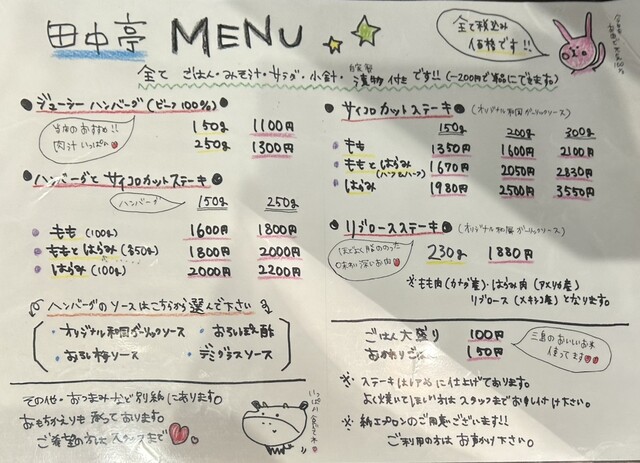 田中亭 MENU
全て税込み
価格です!!
全て ごはん・みそ汁・サラダ・小針・漬物付きです!! (-200円で単品にできます)
●ジューシーハンバーグ (ビーフ100%)
150g 1100円
250g 1300円
当店のおすすめ!!
肉汁いっぱい
●ハンバーグとサイコロカットステーキ
ハンバーグ 150g 250g
・もも (100g) 1600円 1800円
・ももとはらみ (各50g) 1800円 2000円
・はらみ (100g) 2000円 2200円
ハンバーグのソースはこちらから選んで下さい
・オリジナル和風ガーリックソース ・おろしポン酢
・おろし梅ソース ・デミグラスソース
その他・おつまみなど別紙にあります。
おもちかえりも承っております。
ご希望の方はスタッフまで
いっぱい食べてネ
●サイコロカットステーキ (オリジナル和風ガーリックソース)
150g 200g 300g
・もも 1350円 1600円 2100円
・ももとはらみ (ハーフ&ハーフ) 1670円 2050円 2830円
・はらみ 1980円 2500円 3550円
●リブロースステーキ (オリジナル和風ガーリックソース)
230g 1880円
ほどよく脂ののった
味わい深いお肉
※もも肉 (カナダ産)・はらみ肉 (アメリカ産)
リブロース (メキシコ産) となります。
ごはん大盛り 100円
おかわりごはん 150円
三島のおいしいお米
使ってます
※ステーキはレアめに仕上げております。
よく焼いてほしい方はスタッフまでお申し付け下さい。
※紙エプロンのご用意ございます!!
ご利用の方はお声かけ下さい。